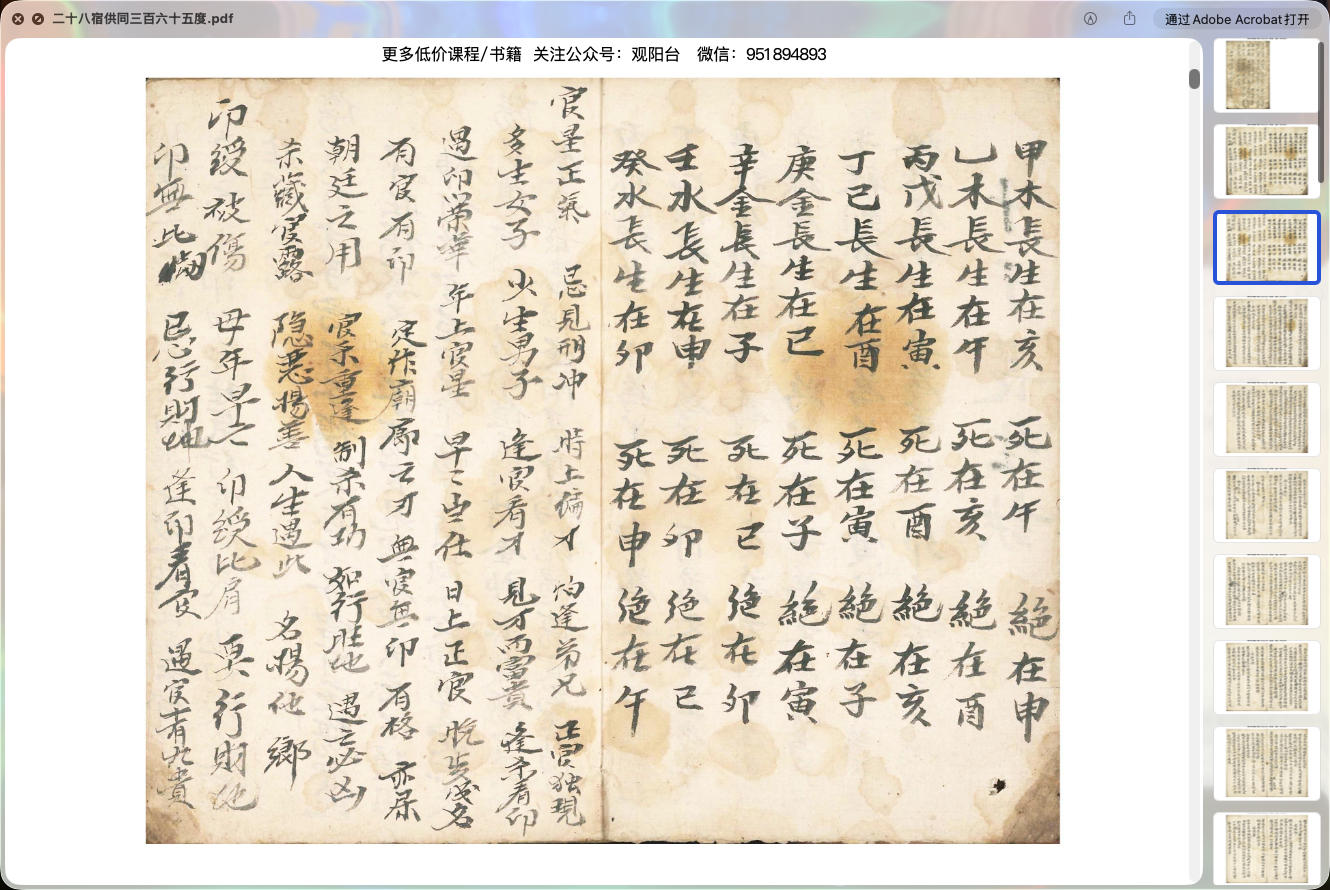 二十八宿供同三百六十五度.pdf
通过Adobe Acrobat打开
更多低价课程/书籍 关注公众号：观阳台 微信：951894893
甲木長生在亥 死在午 絕在申
乙木長生在午 死在亥 絕在酉
丙戊長生在寅 死在酉 絕在亥
丁己長生在酉 死在寅 絕在子
庚金長生在巳 死在子 絕在寅
辛金長生在子 死在巳 絕在卯
壬水長生在申 死在卯 絕在巳
癸水長生在卯 死在申 絕在午
官星正氣 忌見刑冲 時上偏才 怕逢弟兄 正官独現
多生女子 少生男子 逢官看才 見才而富貴 逢杀看印
遇印榮華 年上官星 早之出仕 日上正官
有官有印 定作廊廟之才 無官無印 有格
朝廷之用 官杀重逢 制杀有功 如行 遇之必凶
杀藏官露 隐悪揚善 人生遇此 名揚他鄉
印綬被傷 母年早亡 印綬比肩 莫行財地
印無比 忌行財地 逢印看官 遇官者必貴